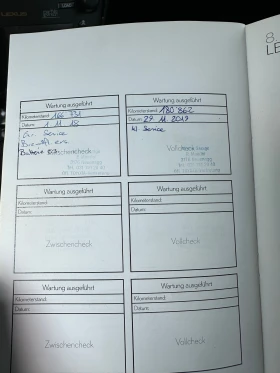 LEXUS
8.
LE
Wartung ausgeführt
Kilometerstand: 166 331
Datum: 1 11 18
Gr. Service
Zwischencheck
Wartung ausgeführt
Kilometerstand: 180'862
Datum: 29 11 2019
Kl Service
Wartung ausgeführt
Kilometerstand:
Datum:
Zwischencheck
Wartung ausgeführt
Kilometerstand:
Datum:
Vollcheck
Wartung ausgeführt
Kilometerstand:
Datum:
Zwischencheck
Wartung ausgeführt
Kilometerstand:
Datum:
Vollcheck